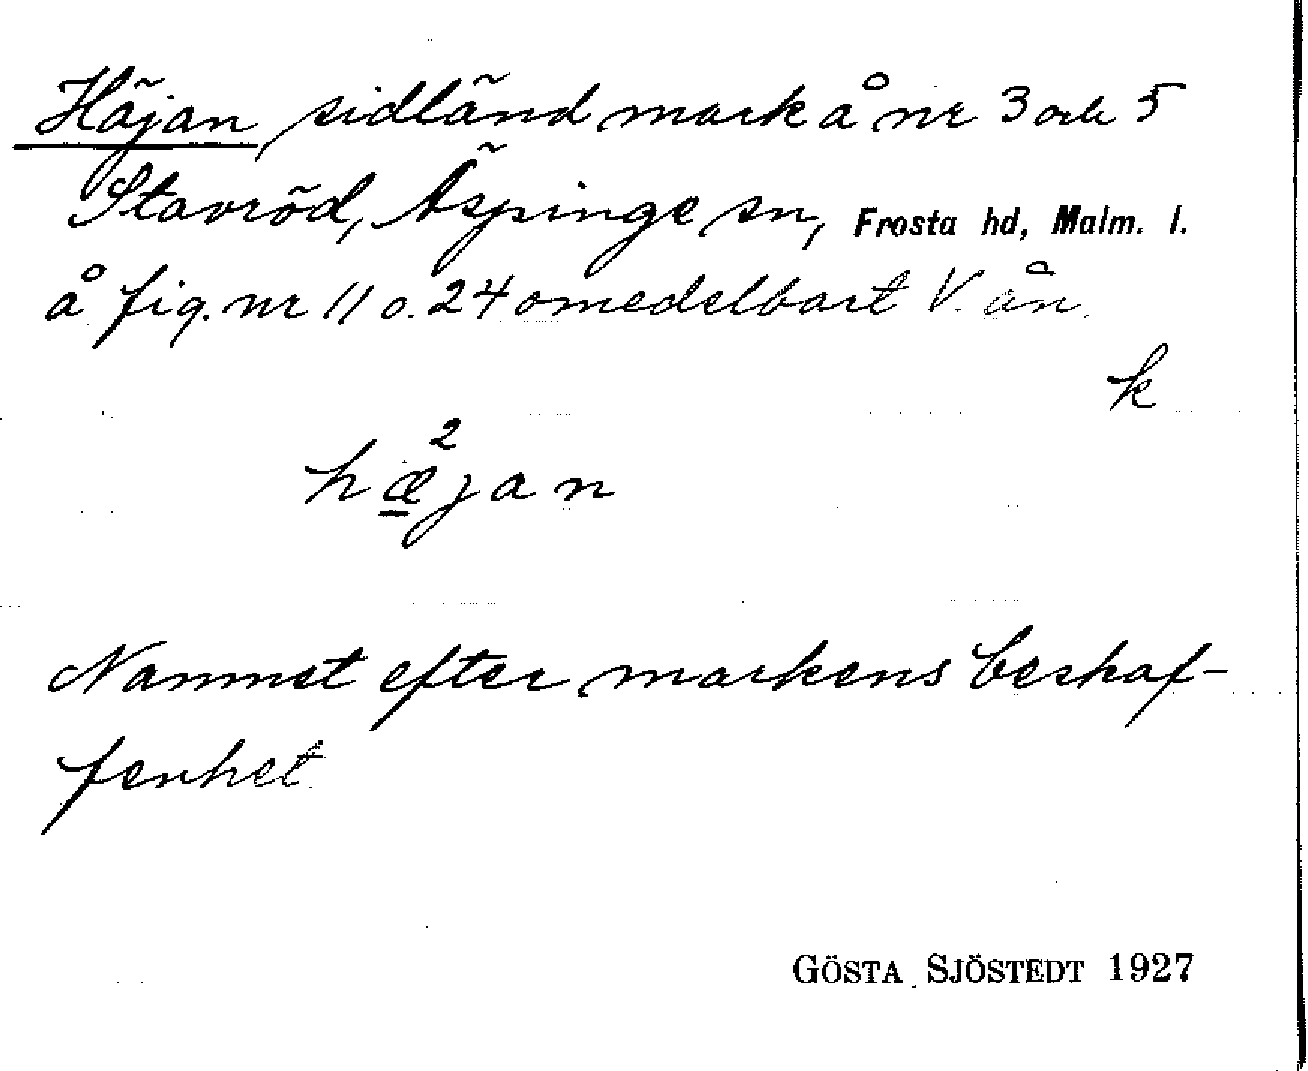 Häjan, sidländ mark å nr 3 och 5
Stavröd, Äspinge sn, Frosta hd, Malm. l.
å fig. nr 11 o. 24 omedelbart V. ån.
k
2
hæjan
Namnet efter markens beskaf-
fenhet.
GÖSTA SJÖSTEDT 1927